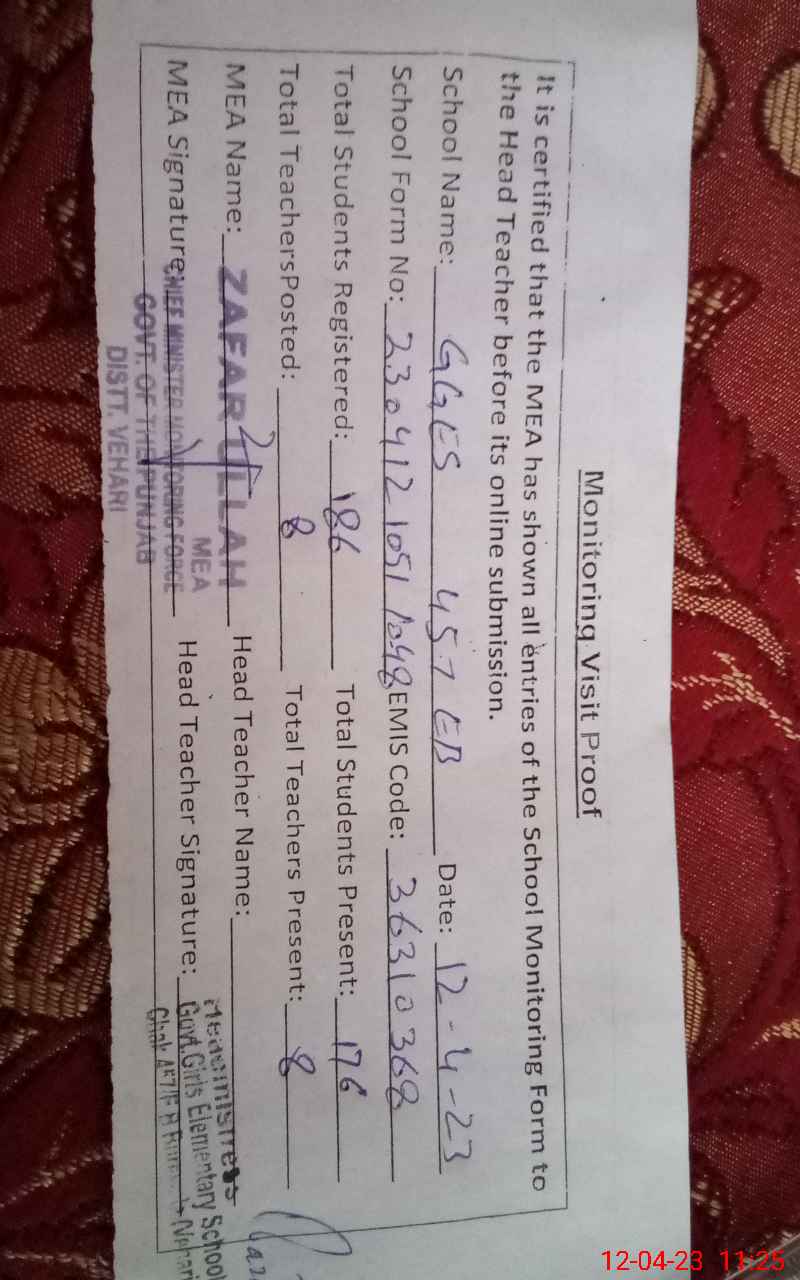 Monitoring Visit Proof
It is certified that the MEA has shown all entries of the School Monitoring Form to
the Head Teacher before its online submission.
School Name: GGES 457 EB Date: 12-4-23
School Form No: 230412 1051 1048 EMIS Code: 36310368
Total Students Registered: 186 Total Students Present: 176
Total TeachersPosted: 8 Total Teachers Present: 8
MEA Name: ZAFAR ULLAH Head Teacher Name:
MEA
MEA Signature: Head Teacher Signature:
CHIEF MINISTER MONITORING FORCE
GOVT. OF THE PUNJAB
DISTT. VEHARI
Headmistress
Govt.Girls Elementary School
Chak 457/E.B
12-04-23 11:25